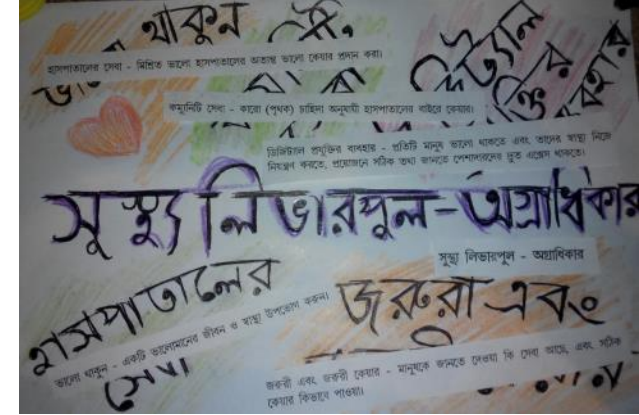 থাকুন
হাসপাতালের সেবা - মিশ্রিত ভালো হাসপাতালের অত্যন্ত ভালো কেয়ার প্রদান করা।
কম্যুনিটি সেবা - কারো (পৃথক) চাহিদা অনুযায়ী হাসপাতালের বাইরে কেয়ার।
ডিজিটাল প্রযুক্তির ব্যবহার - প্রতিটি মানুষ ভালো থাকতে এবং তাদের স্বাস্থ্য নিজে
নিয়ন্ত্রণ করতে, প্রয়োজনে সঠিক তথ্য জানতে পেশাদারদের দ্রুত এক্সেস থাকতে।
সুস্থ্য লিভারপুল - অগ্রাধিকার
সুস্থ্য লিভারপুল - অগ্রাধিকার
হাসপাতালের
সেবা
জরুরী এবং
ভালো থাকুন - একটি ভালোমানের জীবন ও স্বাস্থ্য উপভোগ করুন।
জরুরী এবং জরুরী কেয়ার - মানুষকে জানতে দেওয়া কি সেবা আছে, এবং সঠিক
কেয়ার কিভাবে পাওয়া।